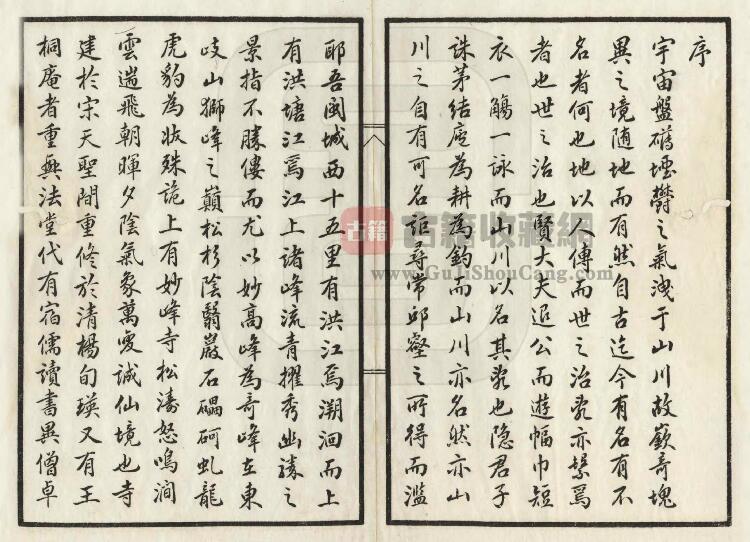 序
宇宙盤礴堙鬱之氣洩于山川故嶔奇塊
異之境随地而有然自古迄今有名有不
名者何也地以人傳而世之治乱亦繫焉
者也世之治也賢大夫退公而遊幅巾短
衣一觴一詠而山川以名其乱也隐君子
誅茅結庵為耕為釣而山川亦名然亦山
川之自有可名詎尋常邱壑之所得而滥
耶吾閩城西十五里有洪江焉溯洄而上
有洪塘江焉江上諸峰流青擢秀幽勝之
景指不勝僂而尤以妙高峰為奇峰在東
岐山獅峰之巔松杉陰翳巖石礧砢虬龍
虎豹為狀殊詭上有妙峰寺松濤怒鳴澗
雲遄飛朝暉夕陰氣象萬變誠仙境也寺
建於宋天聖間重修於清楊旬瑛又有王
桐庵者重興法堂代有宿儒讀書異僧卓
古籍
古籍收藏網
www.GuJiShouCang.com